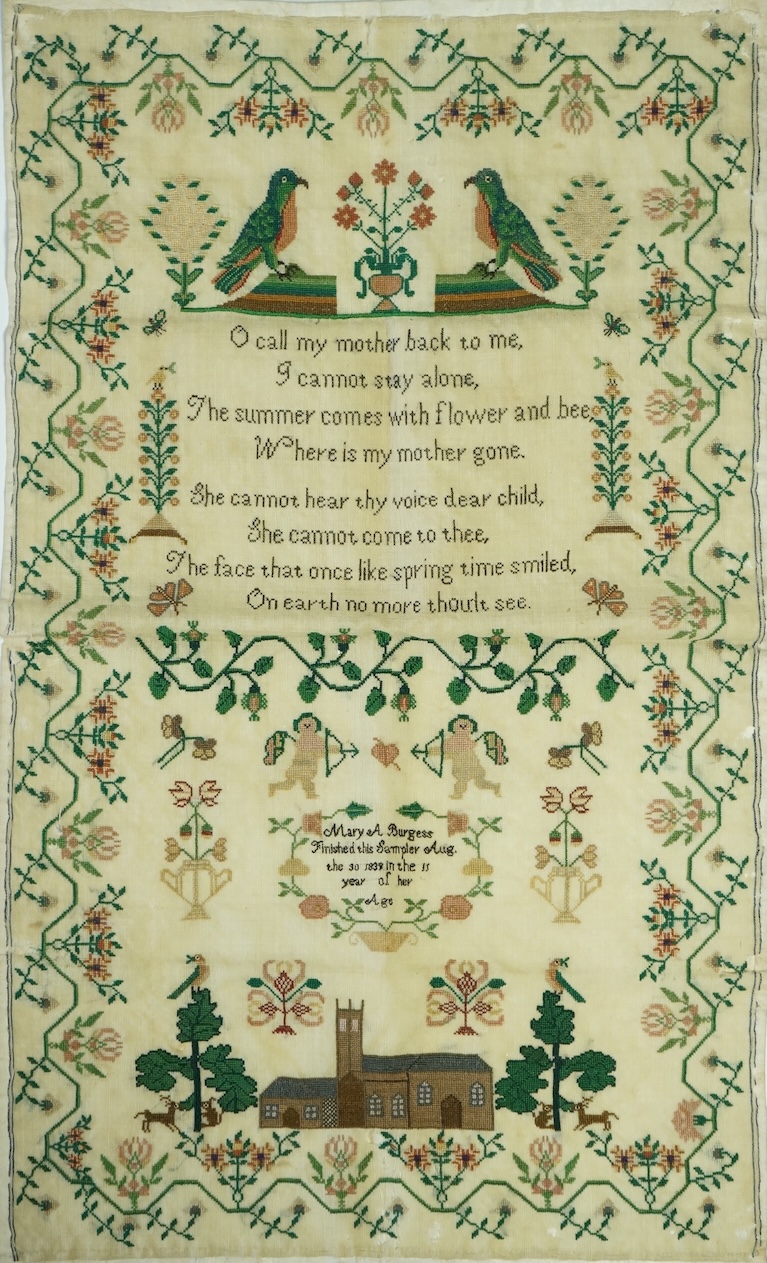 O call my mother back to me,
I cannot stay alone,
The summer comes with flower and bee,
Where is my mother gone.
She cannot hear thy voice dear child,
She cannot come to thee,
The face that once like spring time smiled,
On earth no more thoult see.
Mary A Burgess
Finished this Sampler Aug.
the 30 1839 in the 11
year of her
Age